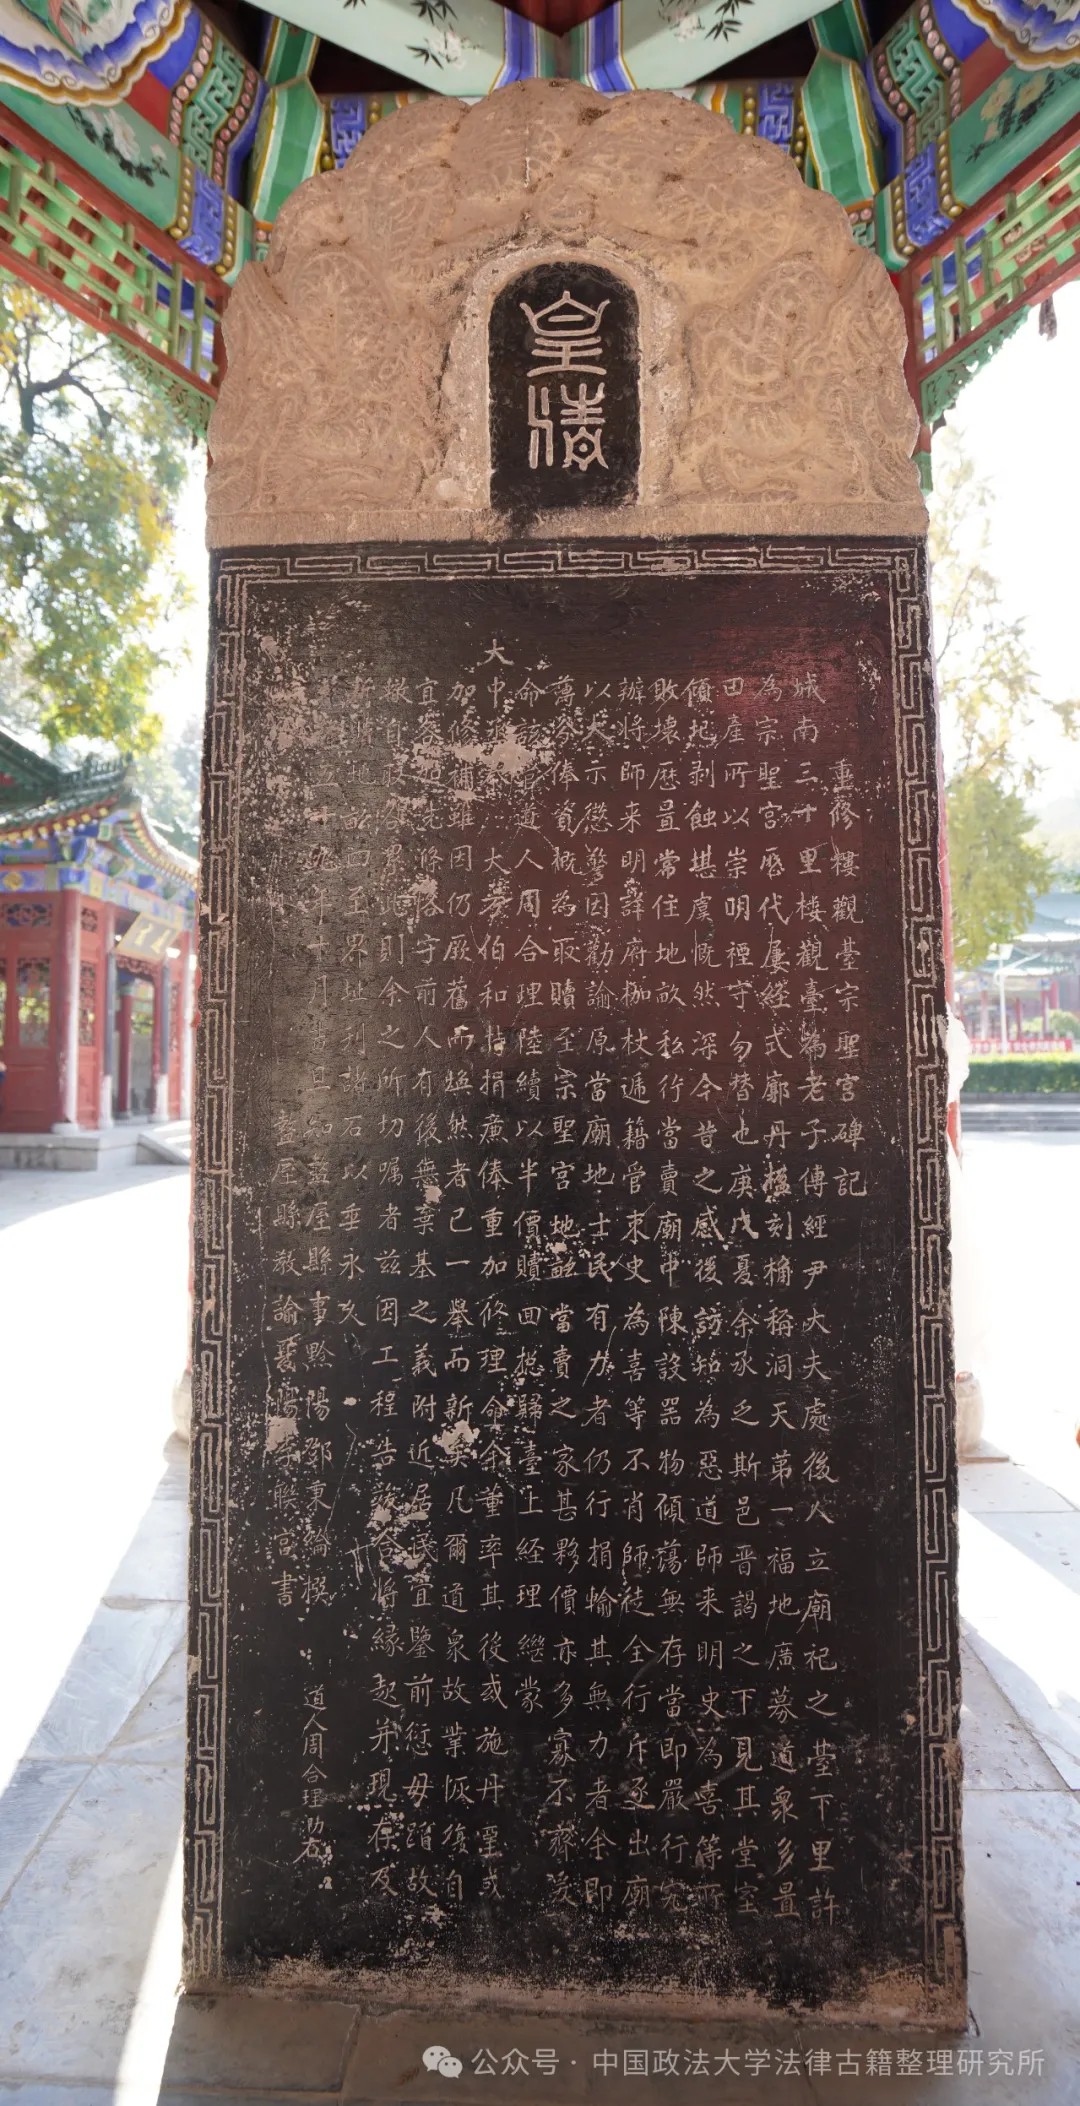 皇清
重修樓觀臺宗聖宮碑記
城南三十里樓觀臺為老子傳經尹大夫處後人立廟祀之臺下里許
為宗聖宮歷代屢經式廓丹楹刻桷稱洞天第一福地廣募道衆多置
田產所以崇明禋守勿替也庚戌夏余承乏斯邑晋謁之下見其堂室
傾圮剥蝕堪虞慨然深今昔之感後訪知為惡道師来明史為喜等所
敗壞歷置常住地畝私行當賣廟中陳設器物傾蕩無存當即嚴行究
辦將師来明詳府枷杖遞籍管束史為喜等不肖師徒全行斥逐出廟
以大示懲警因勸諭原當廟地士民有力者仍行捐輸其無力者余即
薄分俸資概為取贖至宗聖宮地畝當賣之家甚夥價亦多寡不齊爰
命該道人周合理陸續以半價贖回捴歸臺上経理継蒙
大中丞大方伯和特捐亷俸重加修理命余董率其役或施丹堊或
加修補雖因仍厥舊而煥然者已一舉而新矣凡爾道衆故業恢復自
宜洗滌恪守前人有後無棄基之義附近居民宜鑒前愆毋蹈故
轍自取咎累此則余之所切囑者兹因工程告竣合將緣起并現在及
新贖地畝四至界址刊諸石以垂永久
五十九年十月旦知盩厔縣事黔陽鄧秉綸撰
盩厔縣教諭李聯宮書
道人周合理石
公众号·中国政法大学法律古籍整理研究所